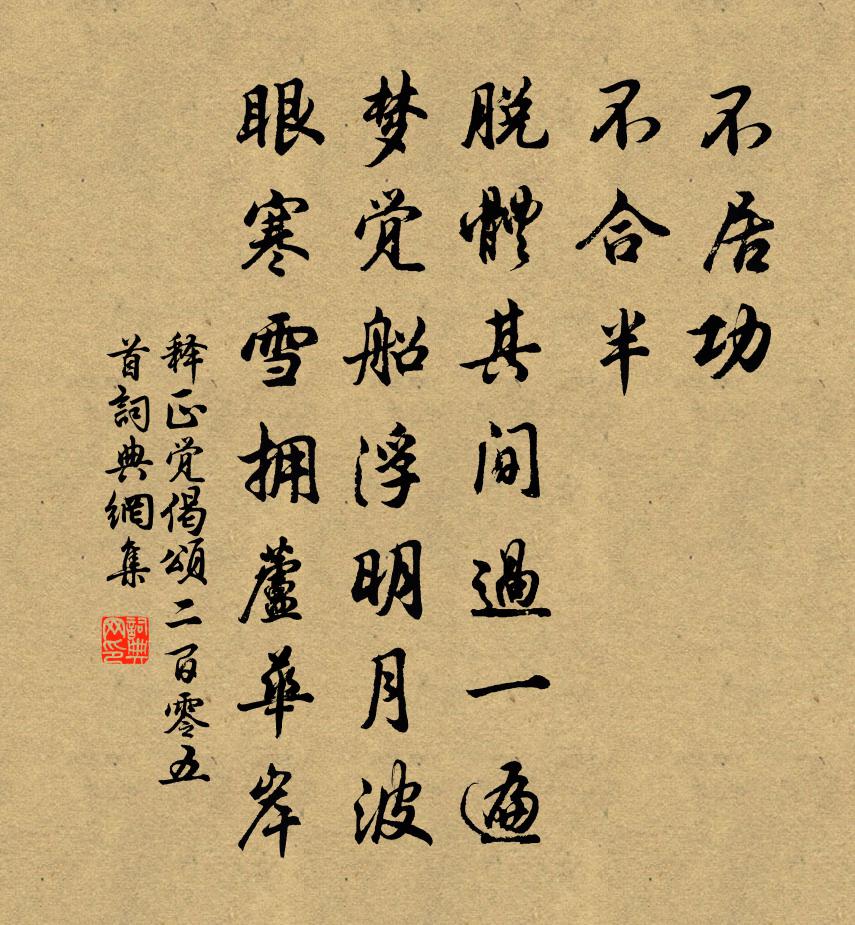 不居功
不合半
脱體其间過一遍
梦觉船浮明月波
眼寒雪拥蘆華岸
释正觉偈頌二百零五
首詞典網集
詞典网印